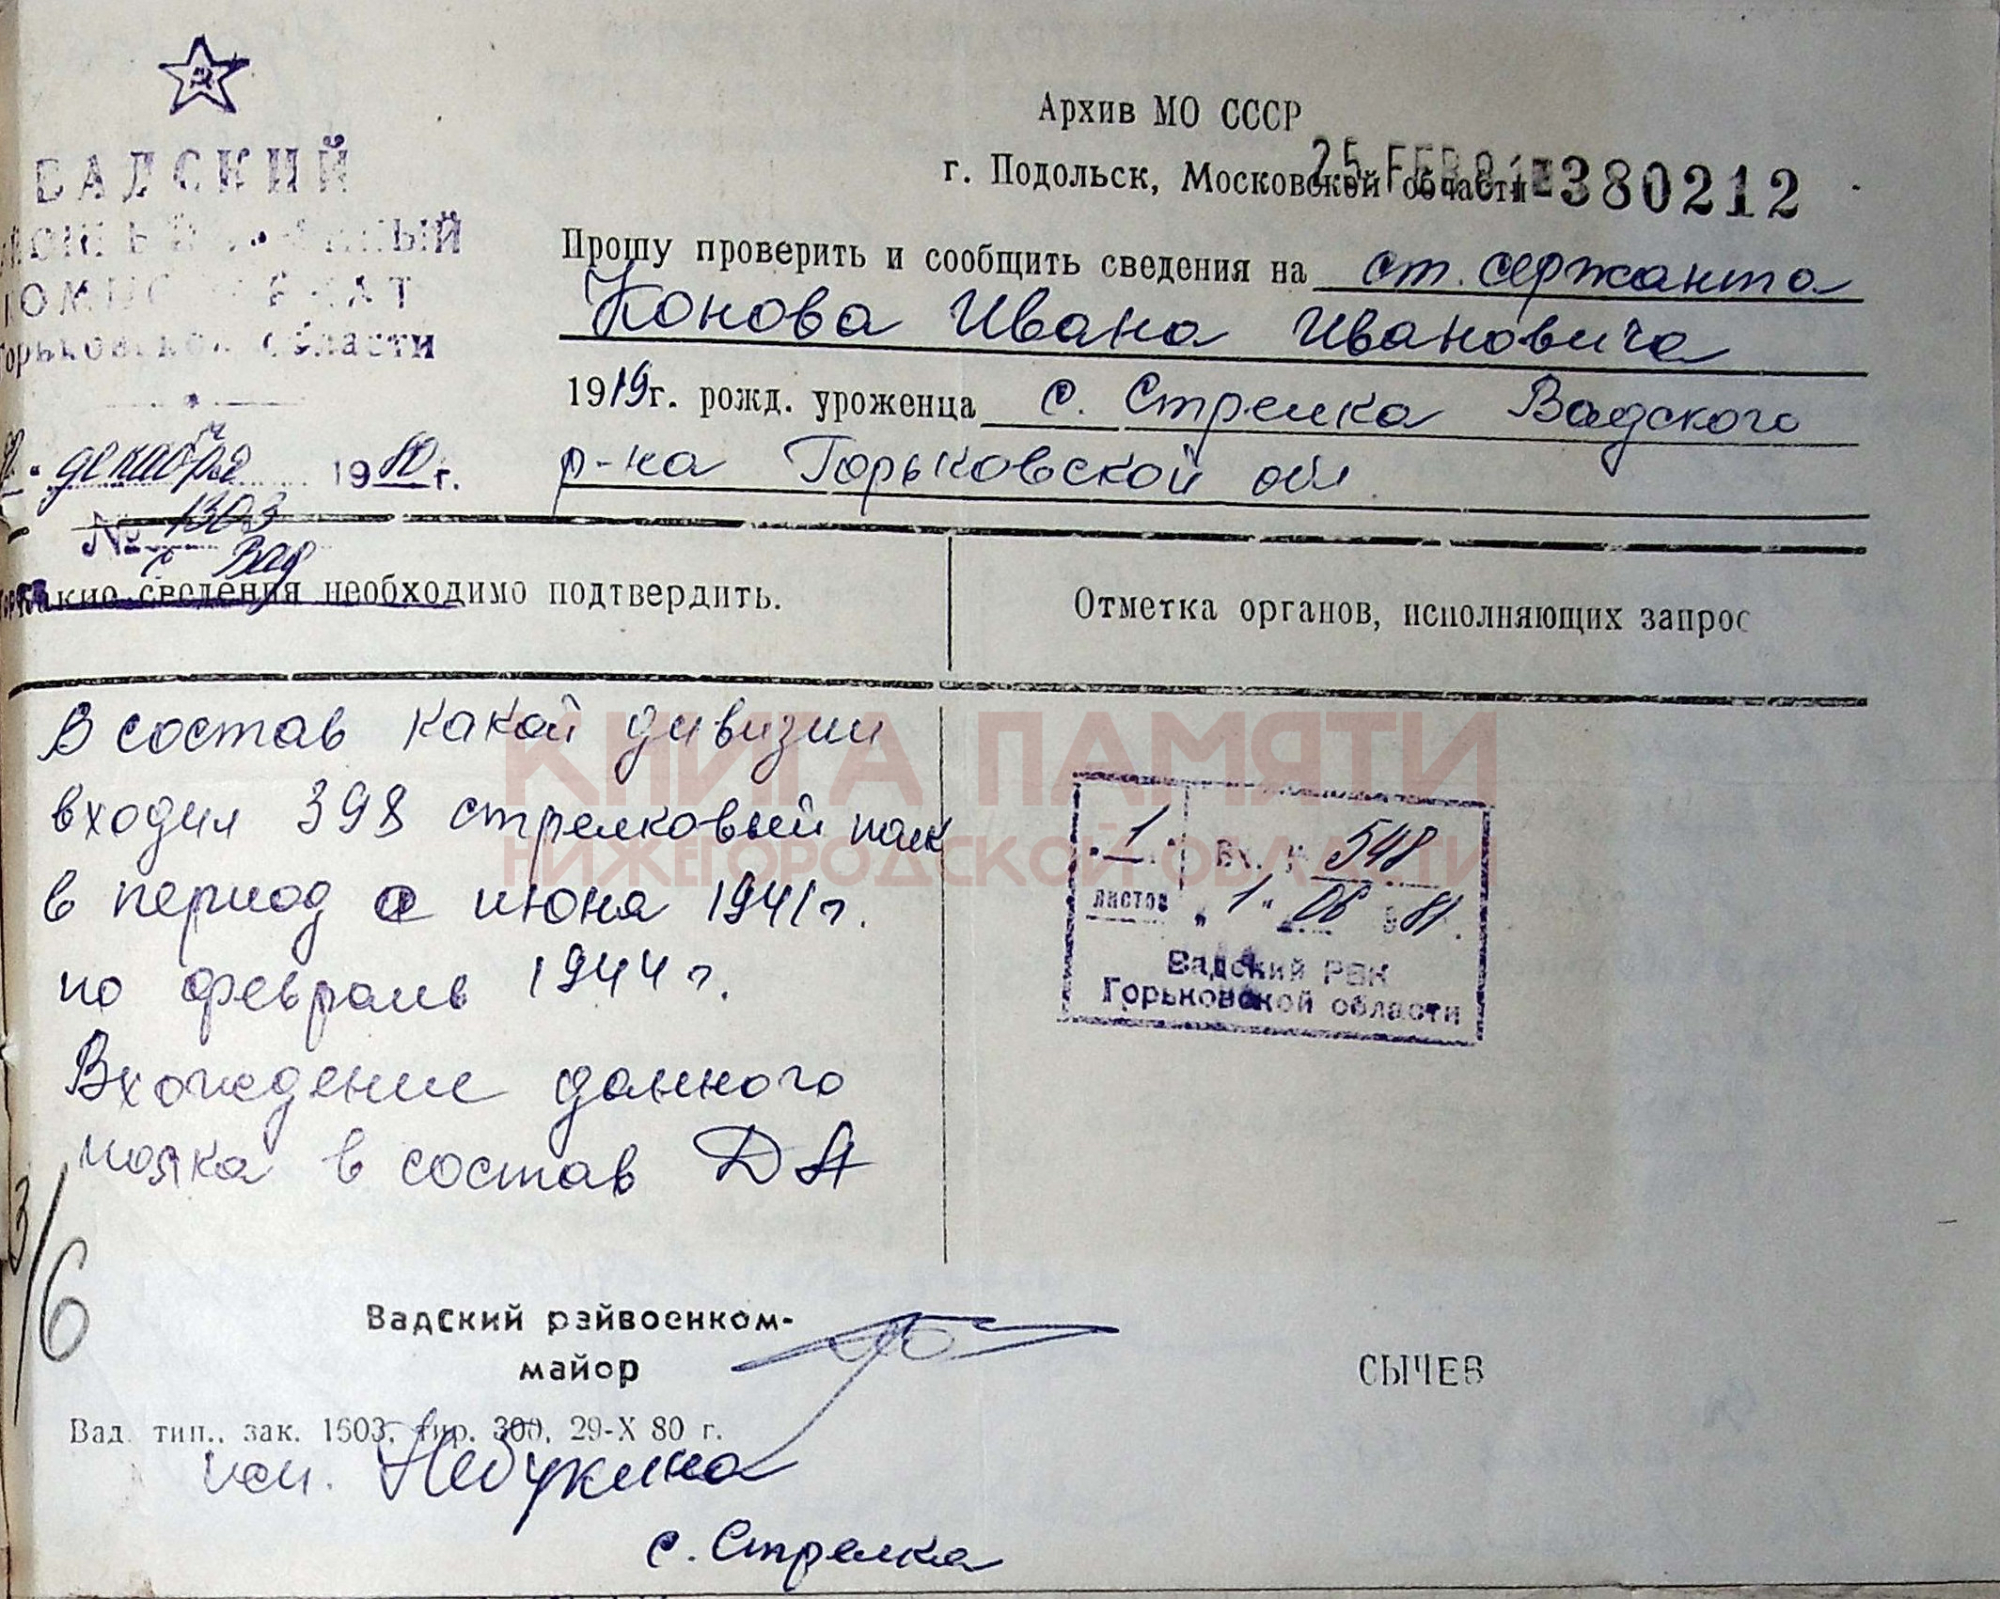 ВАДСКИЙ
РАЙОННЫЙ ВОЕННЫЙ
КОМИССАРИАТ
Горьковской области
декабря 1980 г.
№ 1303
с Вад
Архив МО СССР
г. Подольск, Московской области
25 FEB 81 380212
Прошу проверить и сообщить сведения на ст. сержанта
Конова Ивана Ивановича
1919 г. рожд. уроженца с. Стрелка Вадского
р-на Горьковской обл
Какие сведения необходимо подтвердить.
Отметка органов, исполняющих запрос
В состав какой дивизии
входил 398 стрелковый полк
в период с июня 1941 г.
по февраль 1944 г.
Вхождение данного
полка в состав ДА
КНИГА ПАМЯТИ
НИЖЕГОРОДСКОЙ ОБЛАСТИ
1 листов
Вх. № 548
"1" 06 1981.
Вадский РВК
Горьковской области
3/6
Вадский райвоенком-
майор
СЫЧЕВ
Вад. тип., зак. 1503, тир. 300, 29-X 80 г.
исп. Небукина
с. Стрелка